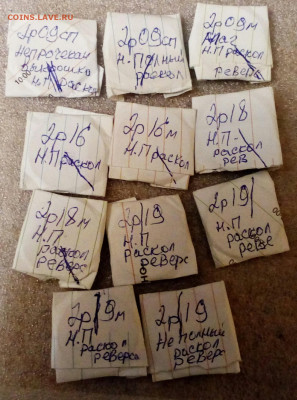 COINS.LAVE.RU
2р09сп
непрочекан
Н.П раскол
2р09сп
Н.Полный
раскол
2р09м
Н.П
раскол
реверс
2р16
Н.П раскол
2р16м
Н.П раскол
2р18
Н.П-
раскол
рев
2р18м
Н.П
раскол
реверс
2р19
Н.П
раскол
реверс
2р19
Н.П
раскол
реверс
2р19м
Н.П
раскол
реверса
2р19
Неполный
раскол
реверс